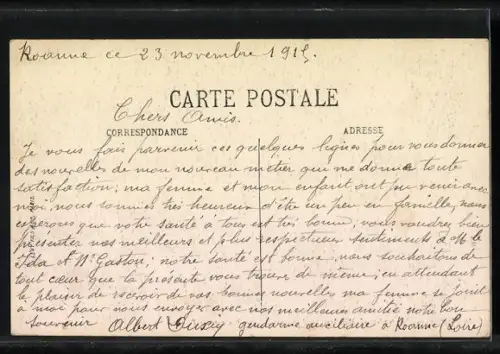 Roanne ce 23 novembre 1915.
CARTE POSTALE
Chers Amis.
CORRESPONDANCE
ADRESSE
Je vous fais parvenir ces quelques lignes pour vous donner
des nouvelles de mon nouveau metier qui me donne toute
satisfaction; ma femme et mon enfant ont pu venir avec
moi, nous sommes très heureux d'être un peu en famille, nous
espérons que votre santé à tous est très bonne, vous voudrez bien
présenter nos meilleurs et plus respectueux sentiments à Mlle
Ida et Mr Gaston; notre santé est bonne, nous souhaitons de
tout cœur que la présente vous trouve de même; en attendant
le plaisir de recevoir de vos bonnes nouvelles ma femme se joint
à moi pour vous envoyer avec nos meilleures amitiés notre bon
souvenir Albert gendarme auxiliaire à Roanne (Loire)